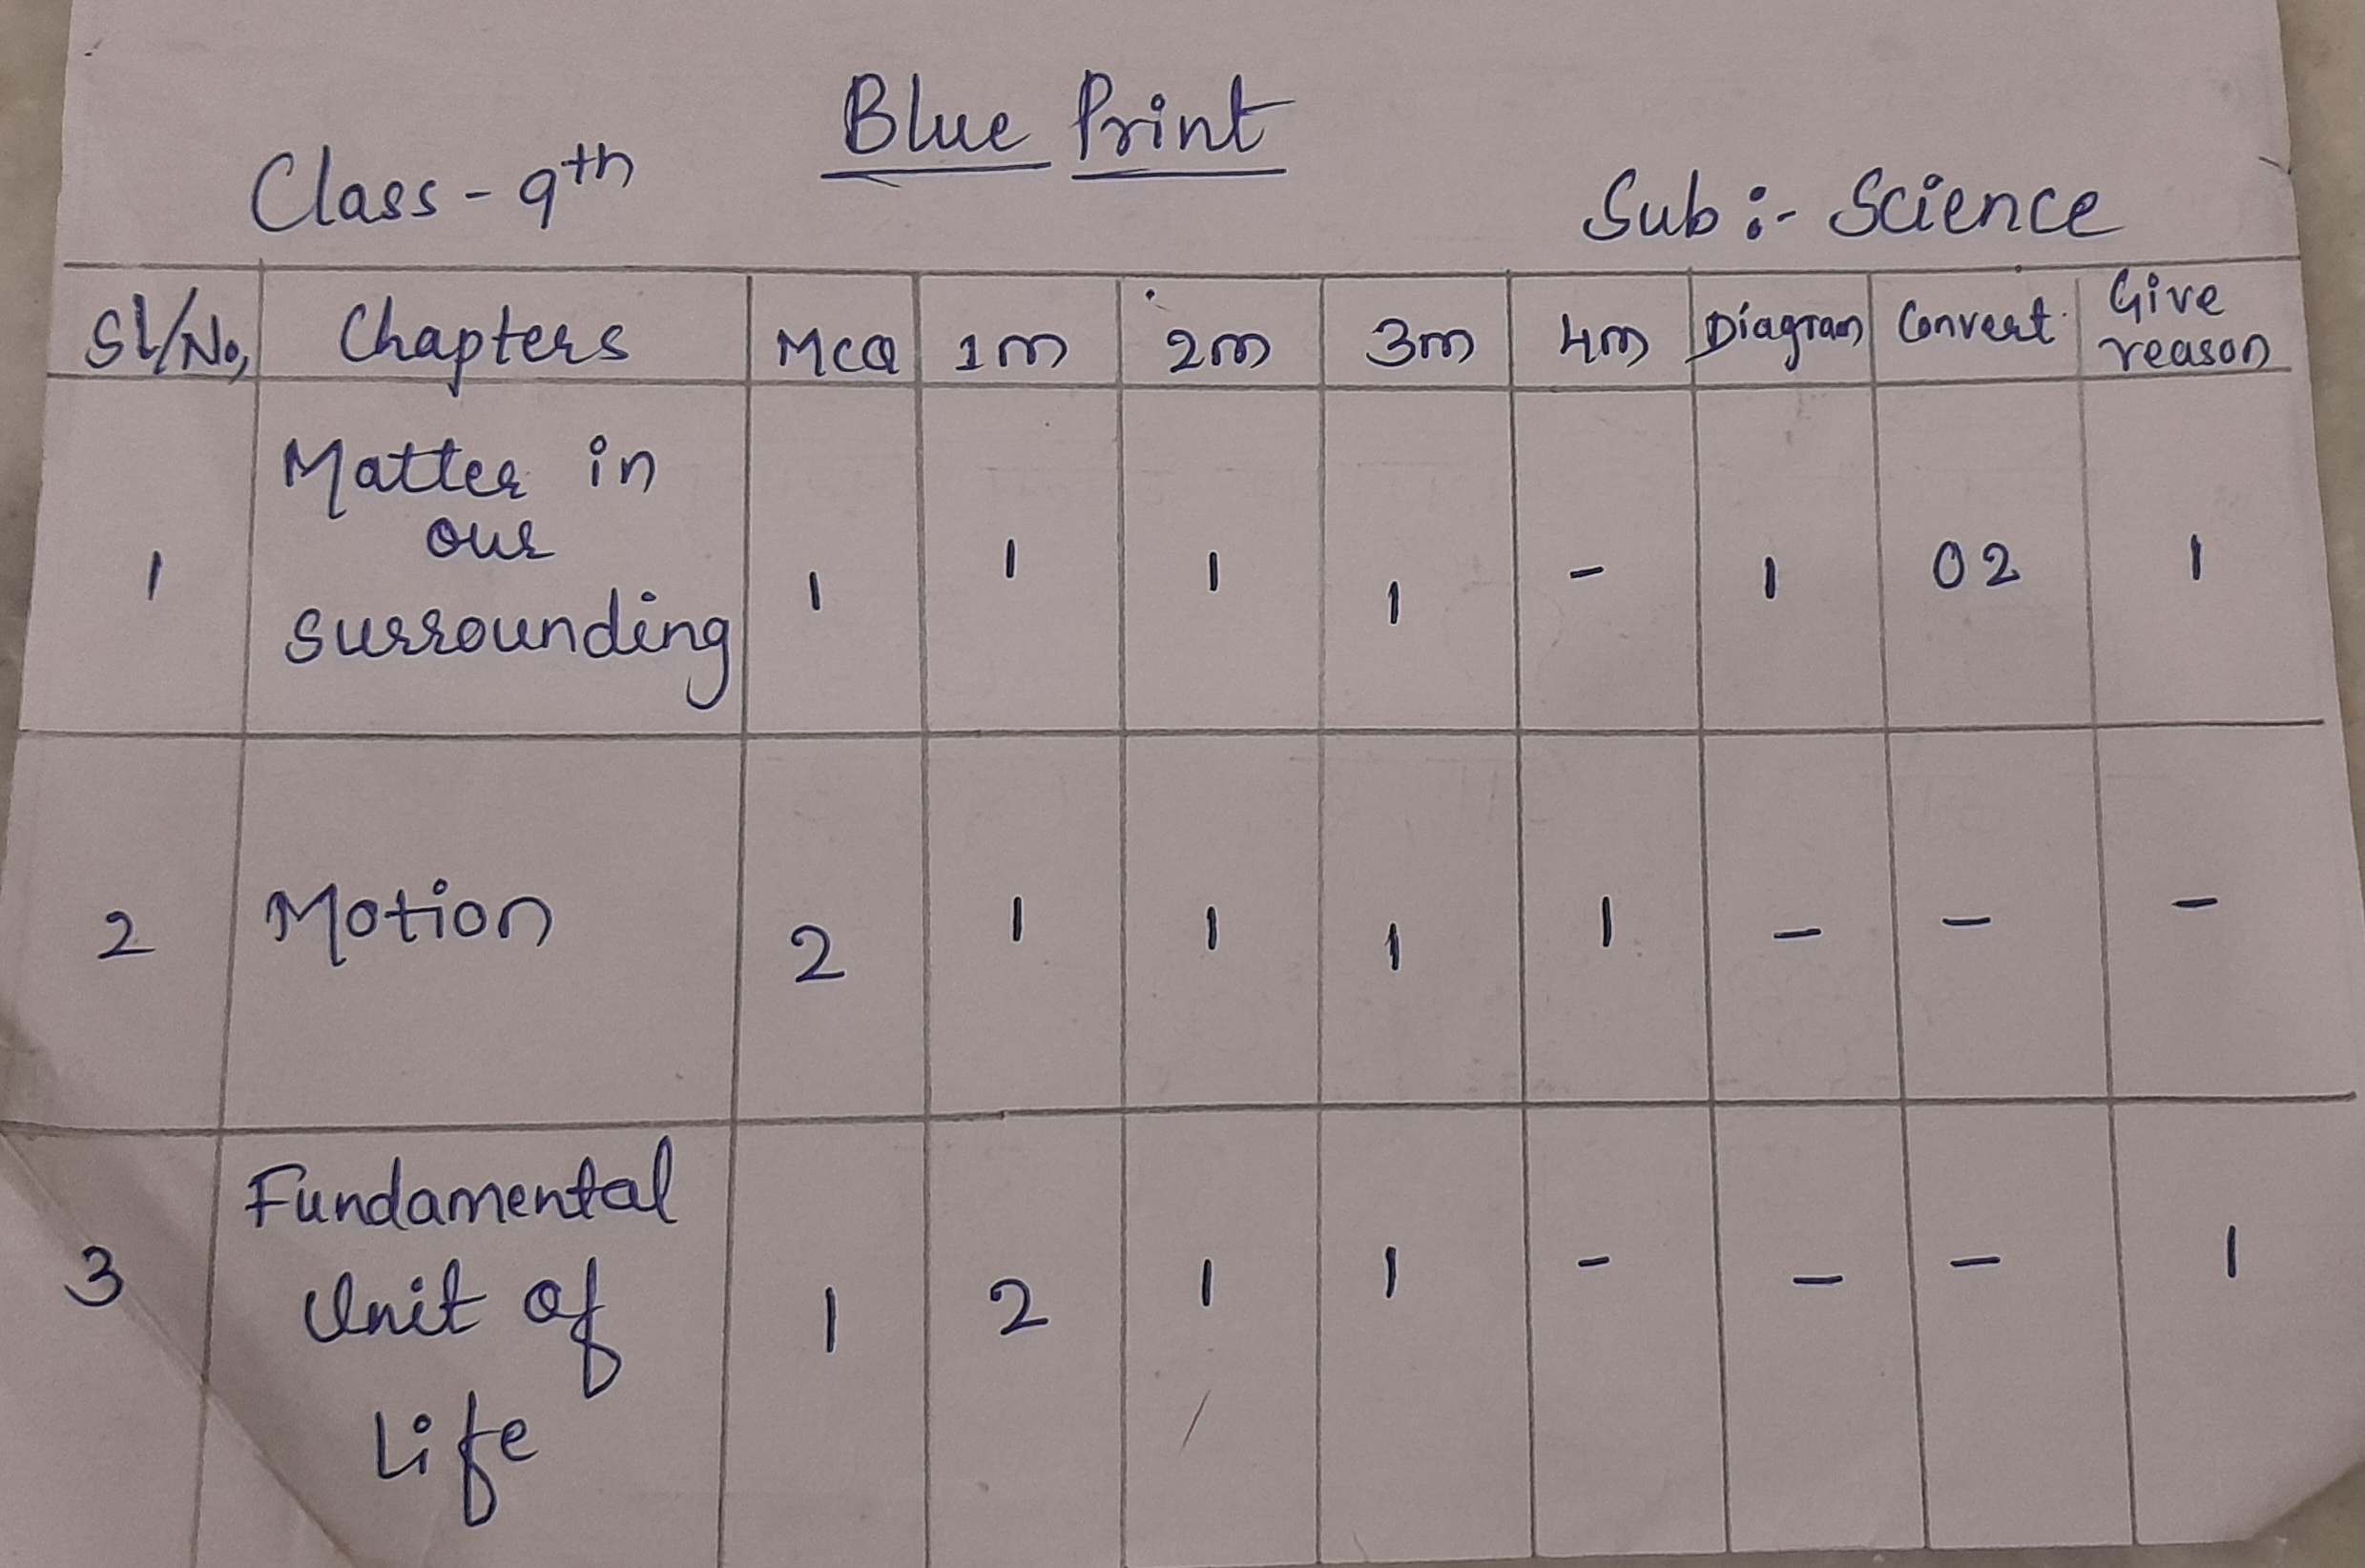 Blue Print
Class - 9th
Sub :- Science
Sl/No, Chapters MCQ 1m 2m 3m 4m Diagram Convert Give reason
1 Matter in our surrounding 1 1 1 1 - 1 02 1
2 Motion 2 1 1 1 1 - - -
3 Fundamental Unit of Life 1 2 1 1 - - - 1